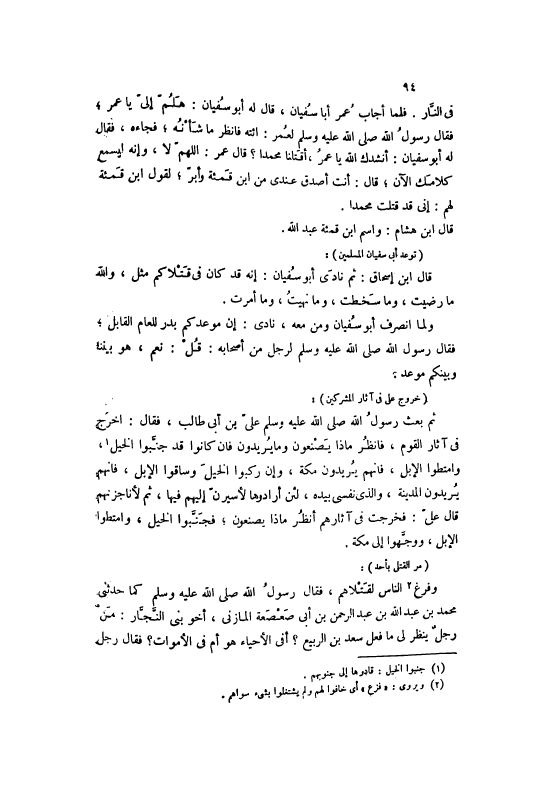 ٩٤
فى النَّار . فلما أجاب عُمر أبا سُفيان ، قال له أبو سفيان : هَلُمّ إلىّ يا عمر ؛
فقال رسولُ الله صلى الله عليه وسلم لعُمر : ائته فانظر ما شأْنُه ؛ فجاءه ، فقال
له أبو سفيان : أنشدك الله يا عمرُ ، أقَتلنا محمدا ؟ قال عمر : اللهمّ لا ، وإنه ليسمع
كلامَك الآن ؛ قال : أنت أصدق عندى من ابن قَمئة وأبرّ ؛ لقول ابن قَمئة
لهم : إنى قد قتلت محمدا .
قال ابن هشام : واسم ابن قمئة عبد الله .
( توعد أبى سفيان المسلمين ) :
قال ابن إسحاق : ثم نادَى أبو سُفيان : إنه قد كان فى قَتْلاكم مثل ، والله
ما رضيت ، وما سَخطت ، وما نهيتُ ، وما أمرت .
ولما انصرف أبو سُفيان ومن معه ، نادى : إن موعدكم بدر للعام القابل ؛
فقال رسولُ الله صلى الله عليه وسلم لرجل من أصحابه : قُلْ : نعم ، هو بيننا
وبينكم موعد .
( خروج على فى آثار المشركين ) :
ثم بعث رسولُ الله صلى الله عليه وسلم علىّ بن أبى طالب ، فقال : اخرَج
فى آثار القوم ، فانظُر ماذا يَصْنعون وما يُريدون فان كانوا قد جَنَّبوا الخيل١ ،
وامتطوا الإبل ، فانهم يُريدون مكة ، وإن ركبوا الخيلَ وساقوا الإبل ، فانهم
يُريدون المدينة ، والذى نفسى بيده ، لئن أرادوها لأسيرنّ إليهم فيها ، ثم لأناجزنهم
قال علىّ : فخرجت فى آثارهم أنظُر ماذا يصنعون ؛ فجَنَّبوا الخيل ، وامتطوا
الإبل ، ووجَّهوا إلى مكة .
( مر القتلى بأحد ) :
وفرغ٢ الناس لقَتْلاهم ، فقال رسولُ الله صلى الله عليه وسلم كما حدثنى
محمد بن عبد الله بن عبد الرحمن بن أبى صَعْصَعة المازنى ، أخو بنى النَّجَّار : مَنْ
رجلٌ ينظر لى ما فعل سعد بن الربيع ؟ أفى الأحياء هو أم فى الأموات؟ فقال رجل
(١) جنبوا الخيل : قادوها إلى جنوبهم .
(٢) ويروى : « فزع » أى خافوا لهم ولم يشتغلوا بشىء سواهم .